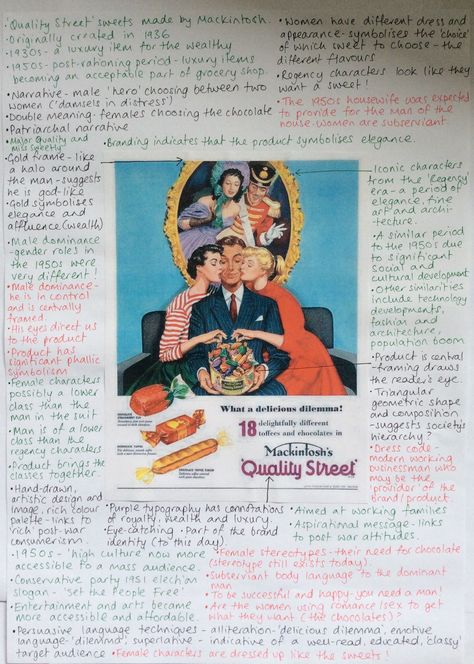 •'Quality Street' sweets made by Mackintosh.
•Originally created in 1936
•1930s - a luxury item for the wealthy
•1950s - post-rationing period - luxury items
becoming an acceptable part of grocery shop.
•Narrative - male 'hero' choosing between two
women ('damsels in distress')
•Double meaning - females choosing the chocolate
•Patriarchal narrative
•Women have different dress and
appearance - symbolises the 'choice'
of which sweet to choose - the
different flavours
•Regency characters look like they
want a sweet!
•The 1950s housewife was expected
to provide for the man of the
house - women are subservient.
•Major Quality and
Miss Sweetly
•Branding indicates that the product symbolises elegance.
•Gold frame - like
a halo around
the man - suggests
he is god-like
•Gold symbolises
elegance and
affluence (wealth)
•Male dominance
- gender roles in
the 1950s were
very different!
•Male dominance -
he is in control
and is centrally
framed
•His eyes direct us
to the product
•Product has
significant phallic
symbolism
•Female characters
possibly a lower
class than the
man in the suit
•Man is of a lower
class than the
regency characters
•Product brings the
classes together
•Hand-drawn,
artistic design and
image, rich colour
palette - links to
'rich' post-war
consumerism
Iconic characters
from the 'Regency'
era - a period of
elegance, fine
art and arch-
itecture.
•A similar period
to the 1950s due
to significant
social and
cultural development
•Other similarities
include technology
developments,
fashion and
architecture,
population boom
•Product is central
- framing draws
the reader's eye.
•Triangular
geometric shape
and composition
- suggests society's
hierarchy?
•Dress code -
modern working
businessman who
may be the
'provider' of the
brand/product.
What a delicious dilemma!
18 delightfully different
toffees and chocolates in
Mackintosh's
Quality Street
•Purple typography has connotations
of royalty, wealth and luxury.
•Eye-catching - Part of the brand
identity (to this day)
•Aimed at working families
•Aspirational message - links
to post war attitudes.
•1950s - 'high culture' now more
accessible to a mass audience.
•Conservative party 1951 election
slogan - 'Set the People Free'
•Entertainment and arts became
more accessible and affordable.
•Female stereotypes - their need for chocolate
(stereotype still exists today).
•Subservient body language to the dominant
man
•To be successful and happy - you need a man!
•Are the women using romance/sex to get
what they want (the chocolates)?
•Persuasive language techniques - alliteration - 'delicious dilemma', emotive
language - 'dilemma', superlative - indicative of a well-read, educated, 'classy'
target audience •Female characters are dressed up like the sweets!